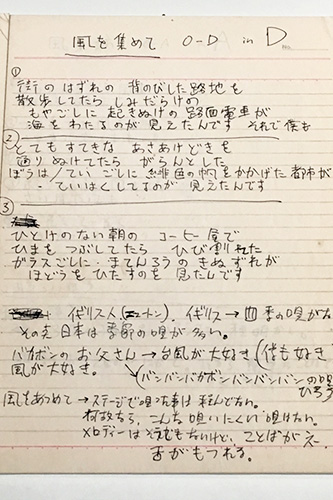 風を集めて O-D in D
①
街の はずれの 背のびした路地を
散歩してたら しみだらけの
もやごしに 起きぬけの 路面電車が
海を わたるのが 見えたんです それで 僕も
②
とても すてきな あさあけどきを
通り ぬけてたら がらんとした
ぼうはてい ごしに 緋色の帆を かかげた 都市が
ていはくしてるのが 見えたんです
③
ひとけのない 朝の コーヒー屋で
ひまを つぶしてたら ひび割れた
ガラスごしに まてんろうの きぬずれが
ほどうを ひたすのを 見たんです
イギリス人 イギリス→ 季の唄が
その点 日本は 季節の 唄が 多い。
バカボンの お父さん → 台風が大好き (俺も好き
風が大好き。
バンバンバカボンバンバンバンの唄
風をあつめて → ステージで唄った事は 殆んどない。
何故なら、こんな 唄いにくい 唄はない。
メロディーは そうでもないけど、ことばが
舌が もつれる。